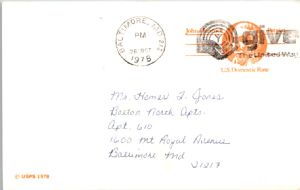 BALTIMORE, MD
PM
1978
John
give
The United Way
U.S. Domestic Rate
Mr. Homer L Jones
Bolton North Apts
Apt. 610
1600 Mt Royal Avenue
Baltimore Md
21217
© USPS 1978